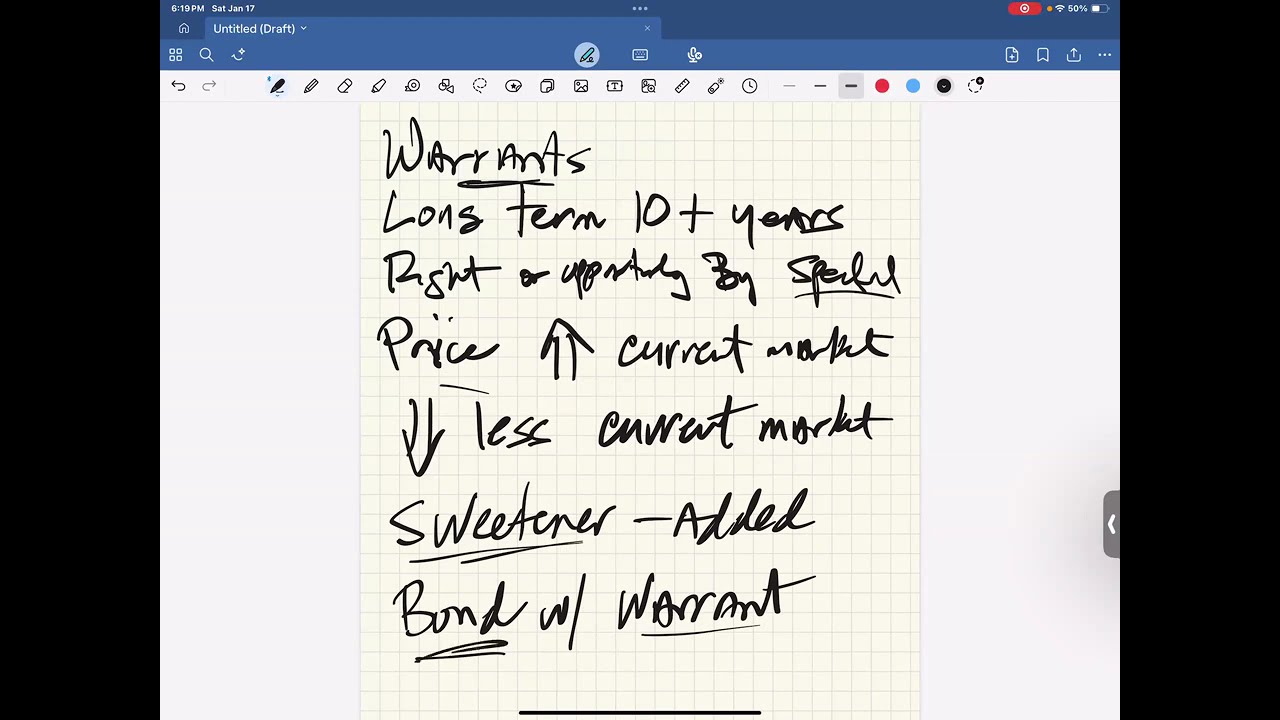 6:19 PM Sat Jan 17
50%
Untitled (Draft)
Warrants
Long Term 10+ years
Right or opportunity By
Price ⇑ current market
⇓ less current market
Sweetener - Added
Bond w/ Warrant